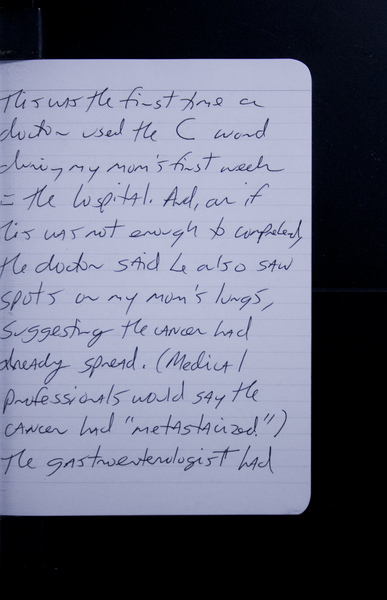 This was the first time a
doctor used the C word
during my mom's first week
in the hospital. And, as if
this was not enough to comprehend,
the doctor said he also saw
spots on my mom's lungs,
suggesting the cancer had
already spread. (Medical
professionals would say the
cancer had "metastacized.")
The gastroenterologist had